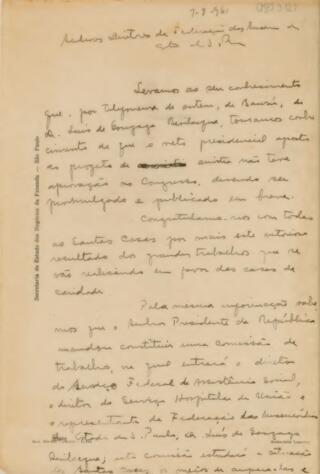 7-7-961
Senhores Diretores da Federação das
do Est. de S. Paulo
Levamos ao seu conhecimento
que, por telegrama de ontem, de Bauru, do
Dr. Luis de Gonzaga Bevilacqua, tomamos conhe
cimento de que o veto presidencial aposto
ao projeto de anistia não teve
aprovação no Congresso, devendo ser
promulgado e publicado em breve.
Congratulamo-nos com todas
as Santas Casas por mais este
resultado dos grandes trabalhos que se
vão realizando em favor das casas de
caridade.
Pela mesma informação sabe
mos que o Senhor Presidente da República
mandou constituir uma comissão de
trabalho, na qual entrará o diretor
do Serviço Federal de Assistência Social,
o diretor do Serviço Hospitalar da União e
o representante da Federação das Misericórdias
do Estado de S. Paulo, dr. Luis de Gonzaga
Bevilacqua; esta comissão estudará a situação
das Santas Casas, os meios de ampará-las e
Secretaria de Estado dos Negócios da Fazenda — São Paulo